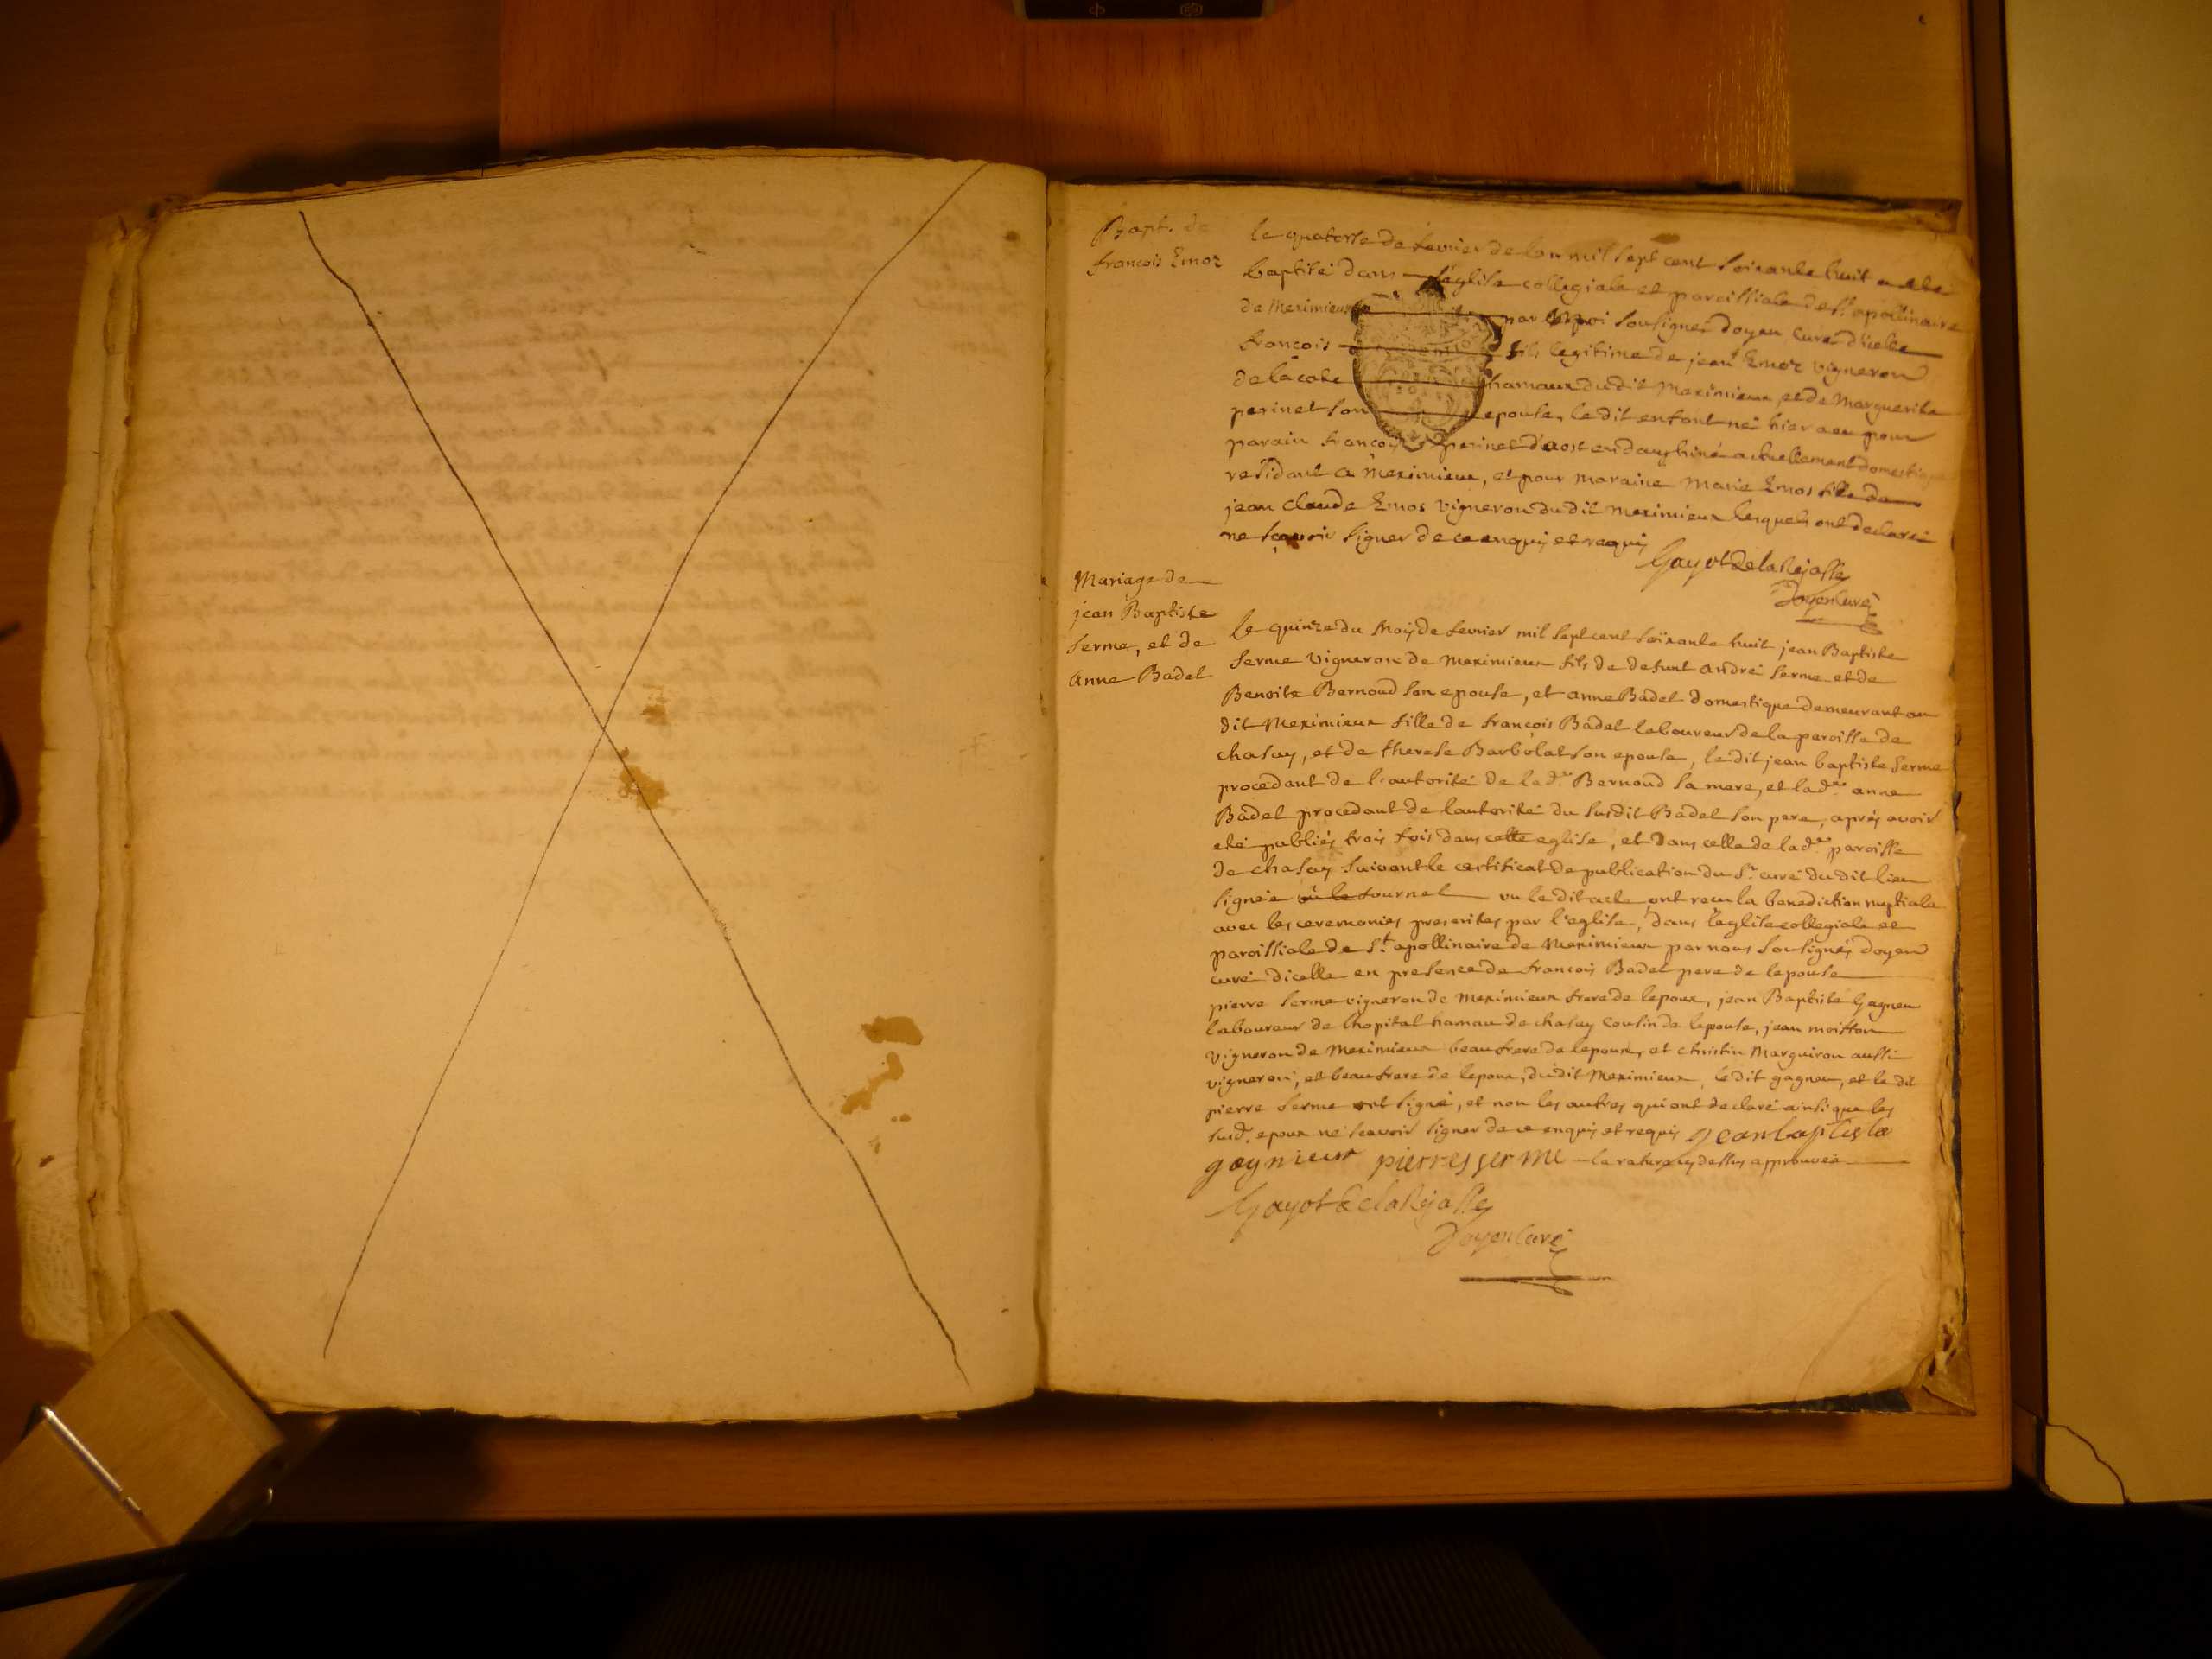 Bapt. de
francois Emoz
le quatorse de fevrier de lan mil sept cent soixante huit a eté
baptisé dans l'église collegiale et paroissiale de St. apollinaire
de Meximieux par moi sousigné doyen curé d'icelle
francois fils legitime de jean Emoz vigneron
de la cote hamaux du dit Meximieux et de Marguerite
perinet son epouse, le dit enfant né hier a eu pour
parain francois perinet d'aost en dauphiné actuellement domestique
residant a meximieux, et pour maraine Marie Emos fille de
jean Claude Emos vigneron du dit meximieux lesquels ont declaré
ne sçavoir signer de ce enquis et requis
Gayot de la Rejasse
Doyen Curé
Mariage de
jean Baptiste
serme, et de
anne Badel
le quinze du Mois de fevrier mil sept cent soixante huit jean Baptiste
serme vigneron de meximieux fils de defunt andré serme et de
Benoite Bernoud son epouse, et anne Badel domestique demeurant au
dit Meximieux fille de françois Badel laboureur de la paroisse de
chasay, et de therese Barbolat son epouse, le dit jean baptiste serme
procedant de l'autorité de la de. Bernoud sa mere, et la de. anne
Badel procedant de lautorité du susdit Badel son pere, aprés avoir
eté publiés trois fois dans cette eglise, et dans celle de la de. paroisse
de chasay suivant le certificat de publication du Sr. curé du dit lieu
signée journel vu le dit acte ont recu la benediction nuptiale
avec les ceremonies prescrites par l'eglise, dans l'eglise collegiale et
paroissiale de St. apollinaire de Meximieux par nous sousignés doyen
curé dicelle en presence de francois Badel pere de lepouse
pierre serme vigneron de Meximieux frere de lepoux, jean Baptiste Gagneu
laboureur de lhopital hamau de chasay cousin de lepouse, jean moisson
vigneron de Meximieux beaufrere de lepoux, et christin Marguiron aussi
vigneron, et beaufrere de lepoux, du dit Meximieux, le dit gagneu, et le dit
pierre serme ont signé, et non les autres qui ont declaré ainsi que les
susd. epoux ne scavoir signer de ce enquis et requis jean baptiste
gagnieur pierres serme la rature cy dessus approuvée
Gayot de la Rejasse
Doyen Curé